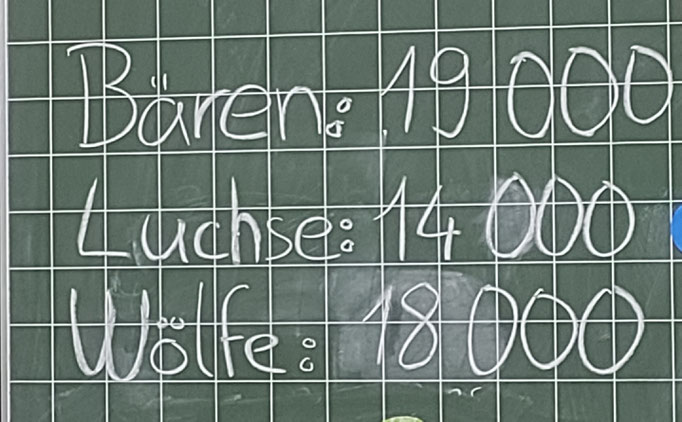 Bären: 19 000
Luchse: 14 000
Wölfe: 18 000